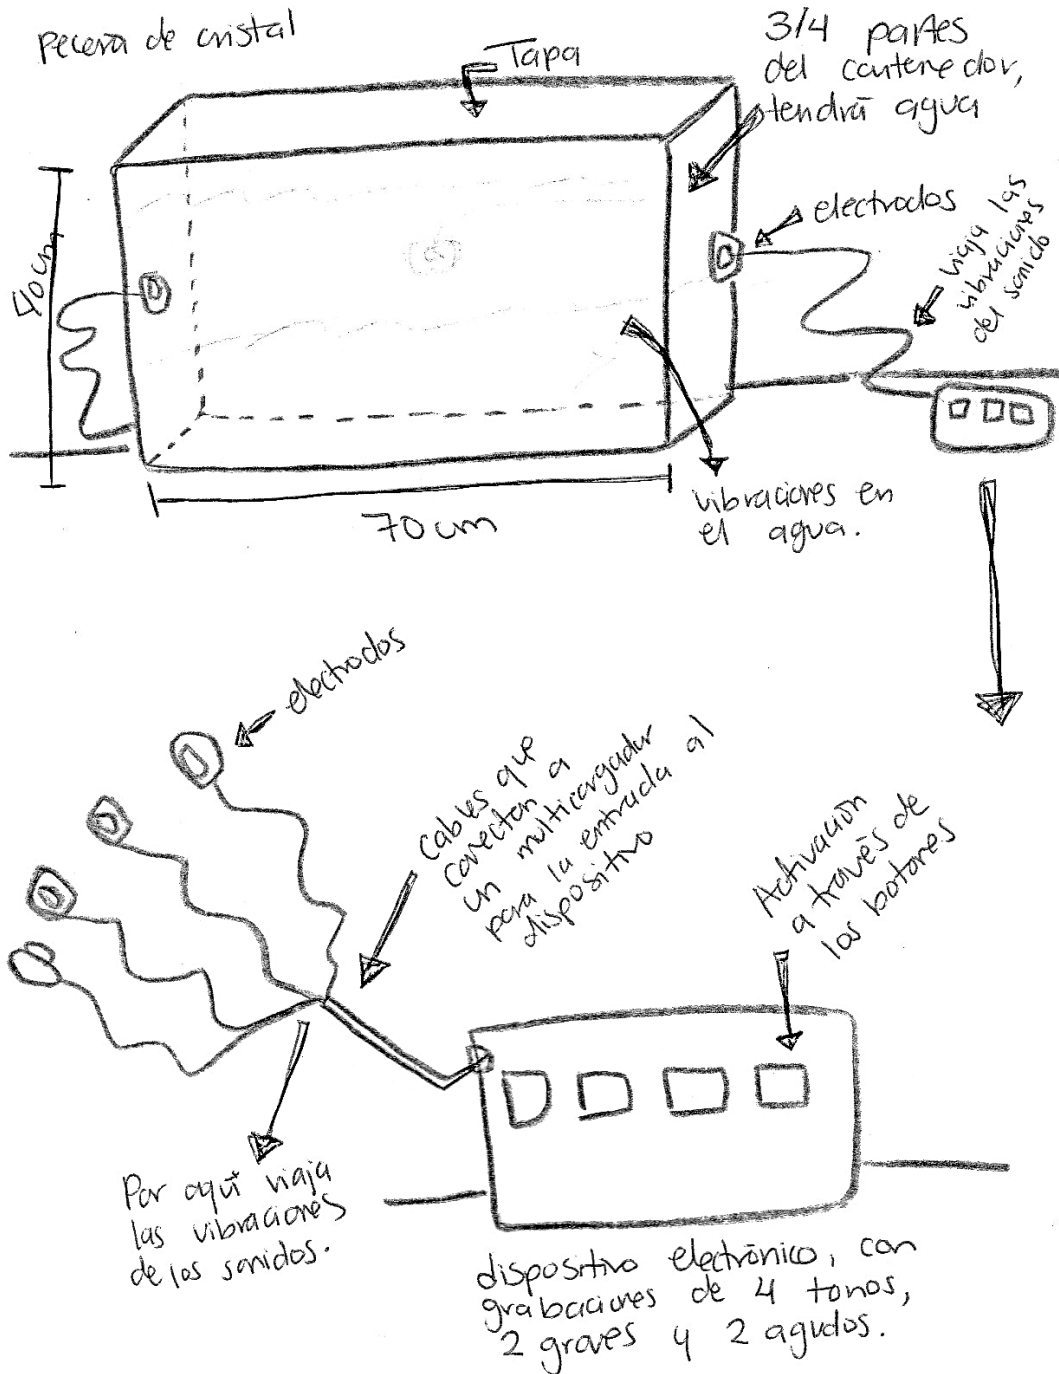 Pecera de cristal
Tapa
3/4 partes
del contenedor,
tendrá agua
electrodos
viaja las
vibraciones
del sonido
40cm
70cm
vibraciones en
el agua.
electrodos
Cables que
conectan a
un multicargador
para la entrada al
dispositivo
Activación
a través de
los botones
Por aquí viaja
las vibraciones
de los sonidos.
dispositivo electrónico, con
grabaciones de 4 tonos,
2 graves y 2 agudos.